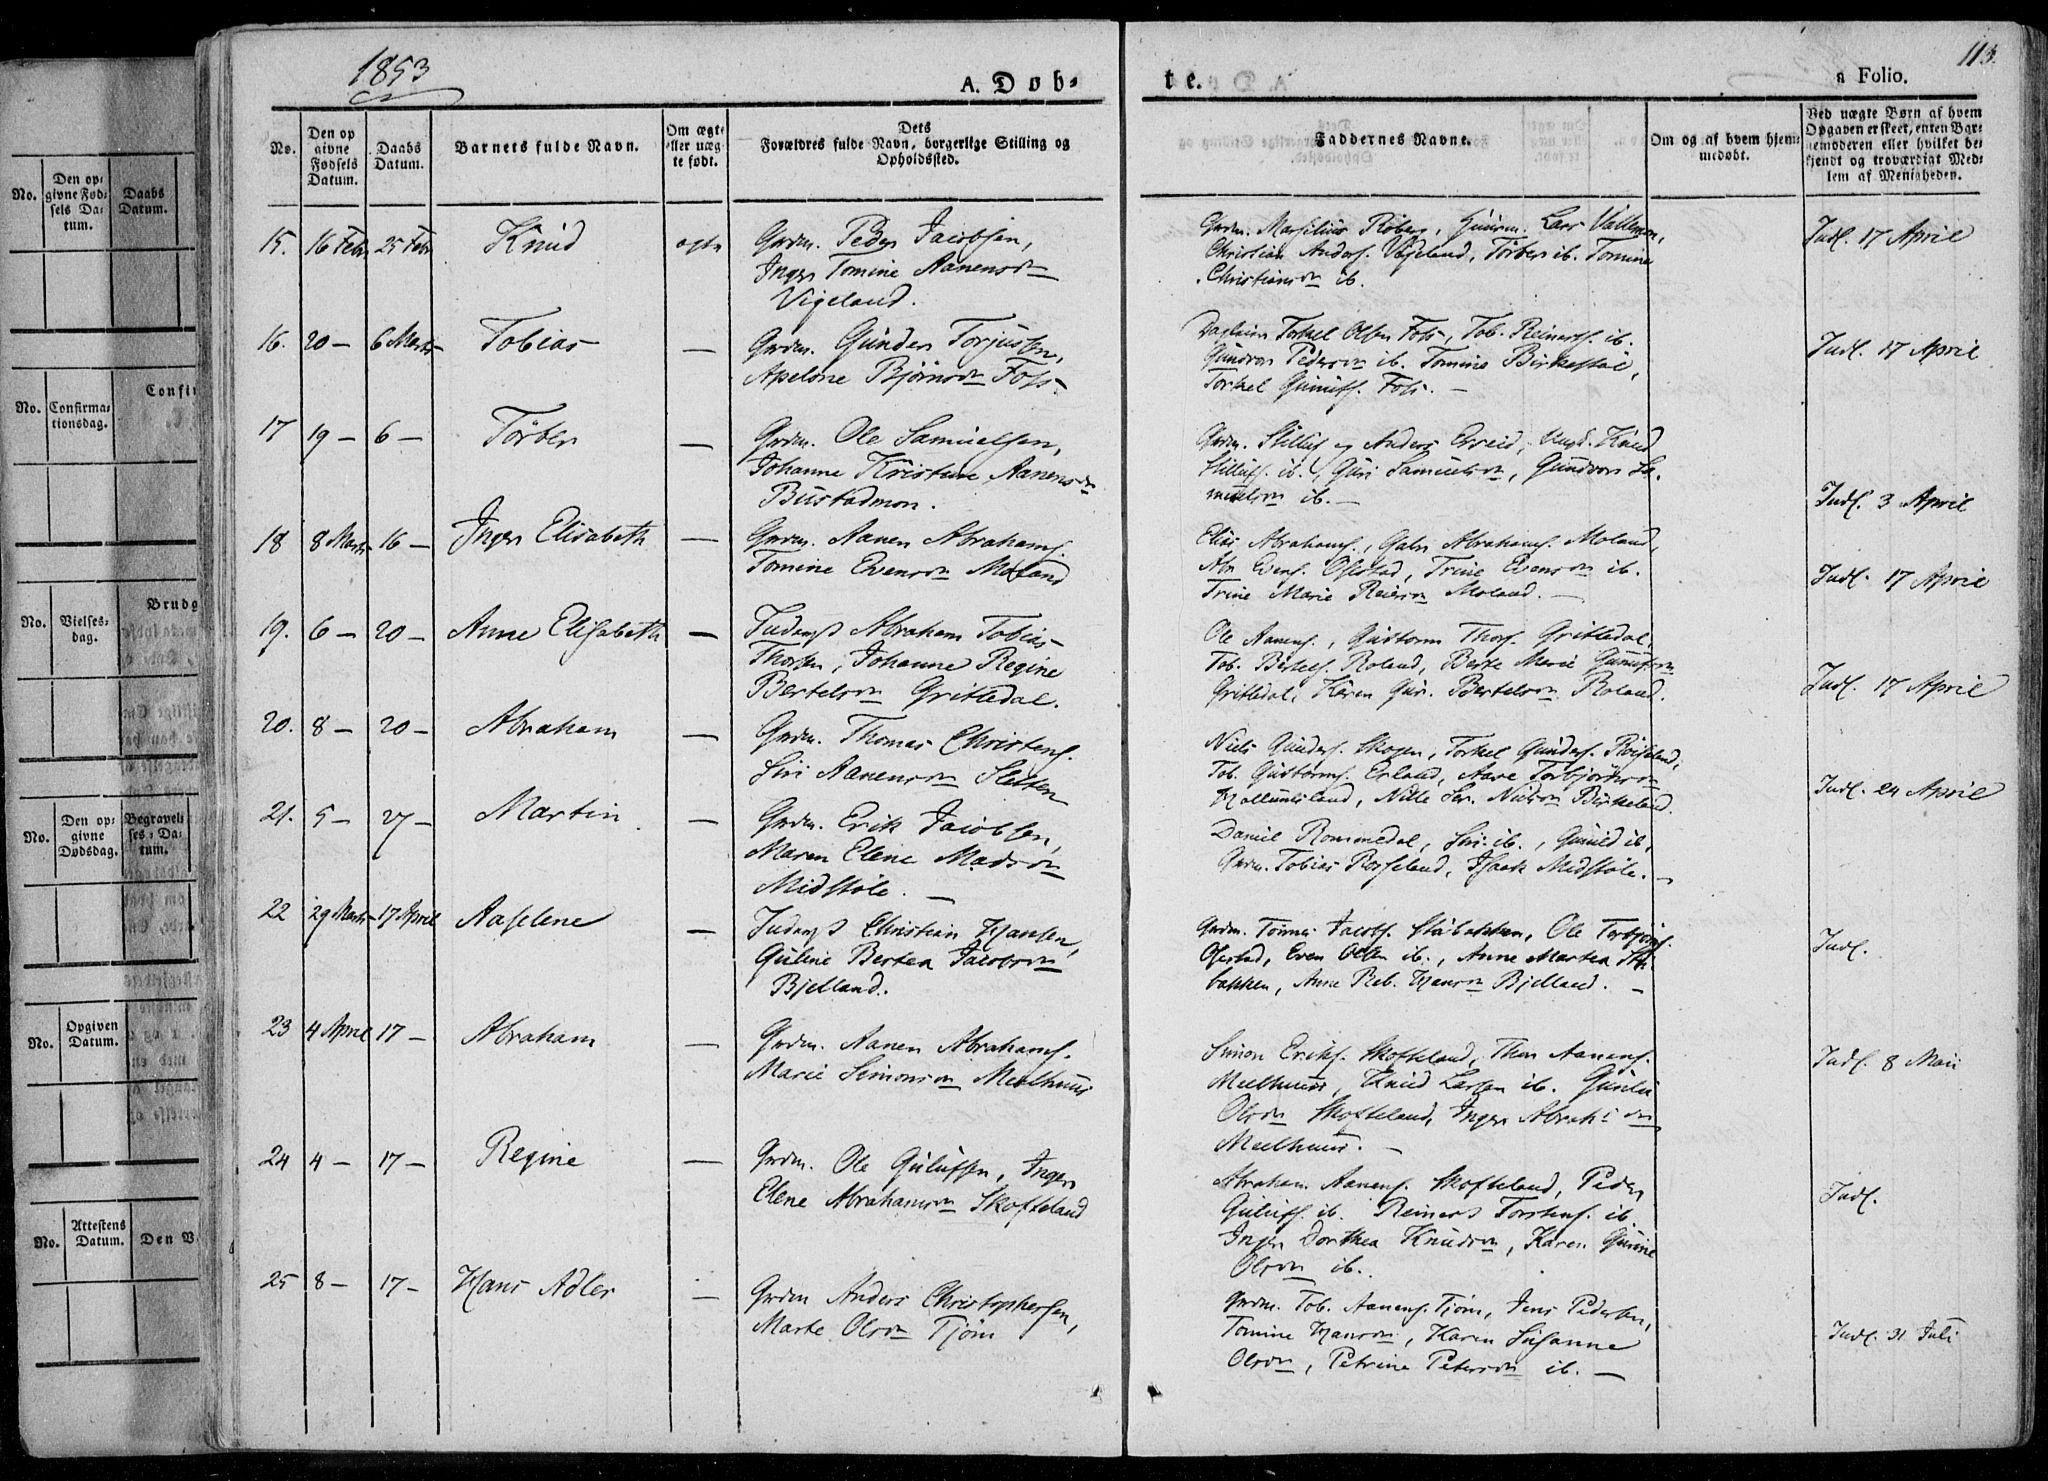 1853
A. Døb-
te.
a Folio.
113.
No.
Den op givne Fødsels Datum.
Daabs Datum.
Barnets fulde Navn.
Om ægte eller uægte født.
Dets Forældres fulde Navn, borgerlige Stilling og Opholdssted.
Faddernes Navne.
Om og af hvem hjemmedøbt.
Ved uægte Børn af hvem Opgaven er skeet, enten Barnemoderen eller hvilket bekjendt og troværdigt Medlem af Menigheden.
15. 16 Febr 25 Febr Knud ægte Grdm. Peder Jacobsen,
Inger Tomine Aanensdn
Vigeland.
Christian Anders. Vigeland, Torber ib. Tomine
Christiansdn ib.
Indl. 17 April
16. 20 – 6 Marts Tobias — Grdm. Gunder Torjussen,
Apelone Bjørnsdn Foss
Torkel Olsen Foss, Tob. Reinerts. ib.
Gundvor Pedersdn ib. Tomine Birkestøl,
Torkel Gunufs. Foss. –
Indl. 17 April
17 19 – 6 – Torber — Grdm. Ole Samuelsen,
Johanne Kristine Aanensdn
Bustadmon.
Guri Samuelsdn, Gundvor Sa-
muelsdn ib. –
Indl. 3 April
18 8 Marts 16 – Inger Elisabeth — Grdm. Aanen Abrahams.
Tomine Evensdn Moland
Elias Abrahams., Gabr. Abrahams. Moland,
Abr Evens. Ofestad, Trine Evensdn ib.
Trine Marie Reiersdn Moland. –
Indl. 17 April
19. 6 – 20 – Anne Elisabeth — Inderst Abraham Tobias
Thorsen, Johanne Regine
Bertelsdn Gritledal.
Ole Aanens., Guttorm Thors. Gritledal,
Tob. Bertels. Roland, Berte Marie Gunufsdn
Gritledal, Karen Gur. Bertelsdn Roland.
Indl. 17 April
20. 8 – 20 – Abraham — Grdm. Thomas Christens.
Siri Aanensdn Sletten
Niels Gunders. Skogen, Torkel Gunders. Røiseland,
Tob. Guttorms. Erland, Aase Torbjørnsdn
Hollumsland, Nille Ser. Nielsdn Birkeland.
Indl. 24 April
21. 5 – 27 – Martin — Grdm. Erik Jacobsen,
Maren Elene Madsdn
Midstøle. –
Daniel Rommedal, Siri ib., Gunild ib,
Grdm. Tobias Rosseland, Isaak Midstøle. –
22 29 Marts 17 April Aaselene — Inderst Christian Hansen,
Guline Bertea Jacobsdn
Bjelland.
Grdm. Tønnes Jacobs. Stubakken, Ole Torbjørns.
Ofestad, Even Olsen ib., Anne Martea Stu-
bakken, Anne Reb. Hansdn Bjelland. –
Indl.
23 4 April 17 – Abraham — Grdm. Aanen Abrahams.
Marie Simonsdn Meelhuus
Simon Eriks. Skofteland, Thor Aanens.
Meelhuus, Knud Larsen ib. Gunlie
Olsdn Skofteland, Inger Abrah: dn
Meelhuus. –
Indl. 8 Mai
24 4 – 17 – Regine — Grdm. Ole Gulufsen, Inger
Elene Abrahamsdn Skofteland
Abraham Aanens. Skofteland, Peder
Gulufs. ib. Reinert Torstens. ib
Inger Dorthea Knudsdn, Karen Gunie
Olsdn ib.
Indl.
25 8 – 17 – Hans Adler — Grdm Anders Christophersen,
Marte Olsdn Tjøm
Grdm. Tob. Aanens. Tjøm, Jens Pedersen,
Tomine Hansdn, Karen Susanne
Olsdn, Petrine Petersdn ib. –
Indl. 31 Juli
No.
Den opgivne Fødsels Datum.
Daabs Datum.
No.
Confirmationsdag.
Confir
No.
Vielsesdag.
Brudg
No.
Den opgivne Dødsdag.
Begravelses-Datum.
No.
Opgiven Datum.
No.
Attestens Datum.
Den V